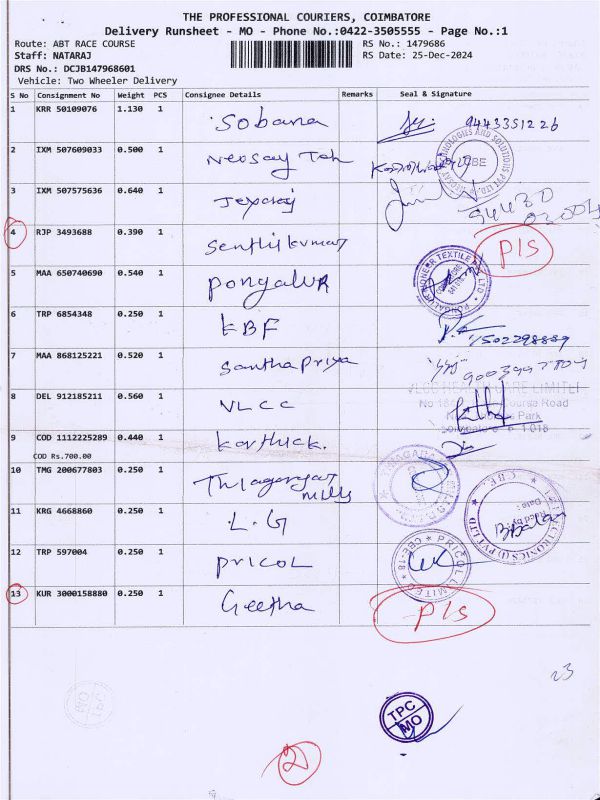 THE PROFESSIONAL COURIERS, COIMBATORE
Delivery Runsheet - MO - Phone No.:0422-3505555 - Page No.:1
Route: ABT RACE COURSE RS No.: 1479686
Staff: NATARAJ RS Date: 25-Dec-2024
DRS No.: DCJB147968601
Vehicle: Two Wheeler Delivery
S No Consignment No Weight PCS Consignee Details Remarks Seal & Signature
1 KRR 50109076 1.130 1 Sobana 9443351226
2 IXM 507609033 0.500 1 Neosay Teh
3 IXM 507575636 0.640 1 Jeyaraj 94430
4 RJP 3493688 0.390 1 Senthilkumar P/s
5 MAA 650740690 0.540 1 Pongalur
6 TRP 6854348 0.250 1 KBF
7 MAA 868125221 0.520 1 Santhapriya
VLCC HEALTH CARE LIMITED
8 DEL 912185211 0.560 1 VLCC
9 COD 1112225289 0.440 1 Karthick.
COD Rs.700.00
10 TMG 200677803 0.250 1 Thiagarajar mills
11 KRG 4668860 0.250 1 L.G
12 TRP 597004 0.250 1 PRICOL PRICOL LIMITED CBE-18
13 KUR 3000158880 0.250 1 Geetha P/s
23
TPC MO
TPC MO
2